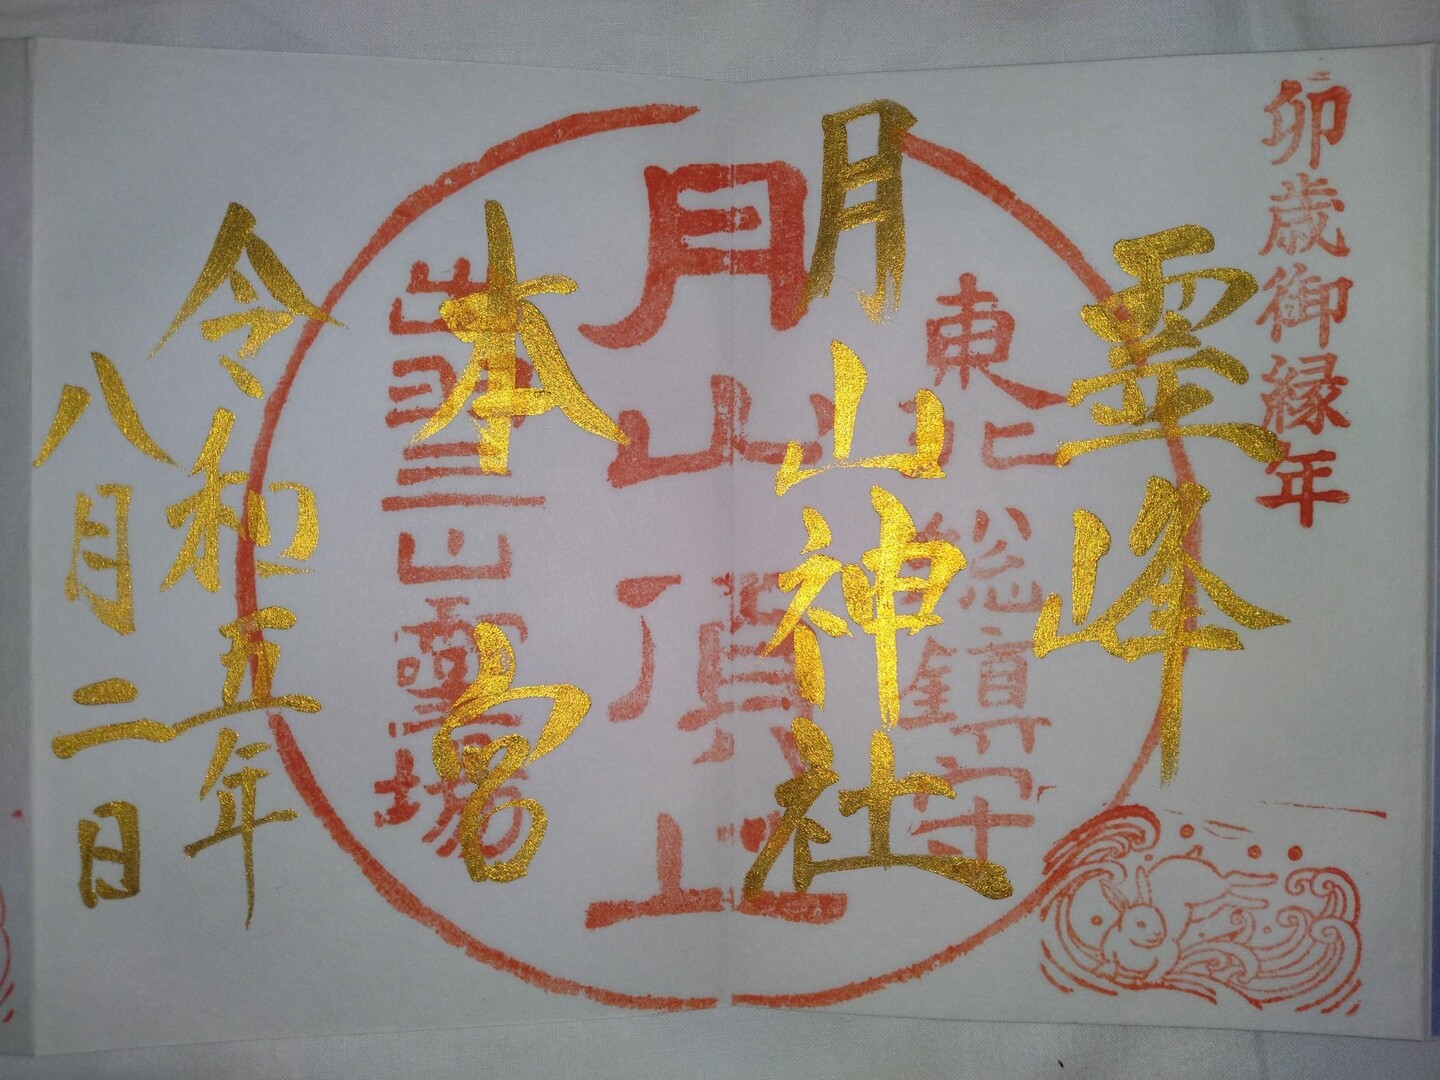 卯歳御縁年
霊峰
東北総鎮守
月山神社
月山頂上
本宮
出羽三山霊場
令和五年
八月二日